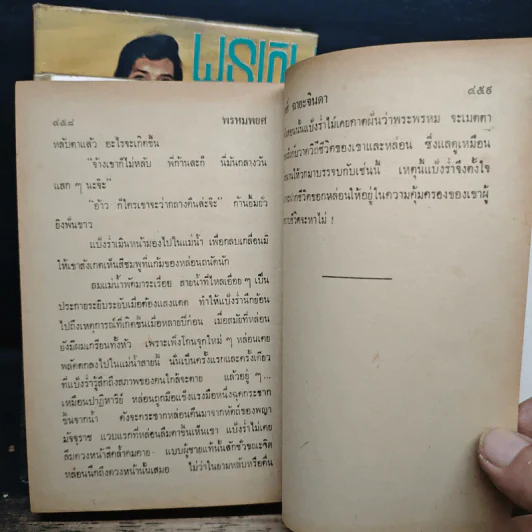 ๔๕๘ พรหมพยศ
หลับตาแล้ว อะไรจะเกิดขึ้น
“จ้างเขาก็ไม่หลับ พี่ก้านละก็ นี่มันกลางวัน
แสก ๆ นะจ๊ะ”
“อ้าว ก็ใครเขาจะว่ากลางคืนล่ะจ๊ะ” ก้านยิ้มยั่ว
ยิงฟันขาว
แบ่งร่ำเมินหน้ามองไปในแม่น้ำ เพื่อกลบเกลื่อนมิ
ให้เขาสังเกตเห็นสีชมพูที่แก้มของหล่อนถนัดนัก
ลมแม่น้ำพัดมาระเรื่อย สายน้ำที่ไหลเอื่อย ๆ เป็น
ประกายระยิบระยับเมื่อต้องแสงแดด ทำให้แบ่งร่ำนึกย้อน
ไปถึงเหตุการณ์ที่เกิดขึ้นเมื่อหลายปีก่อน เมื่อสมัยที่หล่อน
ยังมีผมเกรียนทั้งหัว เพราะเพิ่งโกนจุกใหม่ ๆ หล่อนเคย
พลัดตกลงไปในแม่น้ำสายนี้ นั่นเป็นครั้งแรกและครั้งเดียว
ที่แบ่งร่ำรู้สึกถึงสภาพของคนใกล้จะตาย แล้วอยู่ ๆ...
เหมือนปาฏิหาริย์ หล่อนถูกมือแข็งแรงมือหนึ่งฉุดกระชาก
ขึ้นจากน้ำ ดังจะกระชากหล่อนคืนมาจากหัตถ์ของพญา
มัจจุราช แวบแรกที่หล่อนลืมตาขึ้นเห็นเขา แบ่งร่ำไม่เคย
ลืมดวงหน้าสีคล้ำคมคาย แบบผู้ชายแท้นั้นสักชั่วขณะจิต
หล่อนนึกถึงดวงหน้านั้นเสมอ ไม่ว่าในยามหลับหรือตื่น
จายะจินดา ๔๕๙
แบ่งร่ำไม่เคยคาดฝันว่าพระพรหม จะเมตตา
วิถีชีวิตของเขาและหล่อน ซึ่งแลดูเหมือน
ให้วกมาบรรจบกันเช่นนี้ เหตุนี้แบ่งร่ำจึงตั้งใจ
ชีวิตของหล่อนให้อยู่ในความคุ้มครองของเขาผู้
ชีวิตจะหาไม่ !